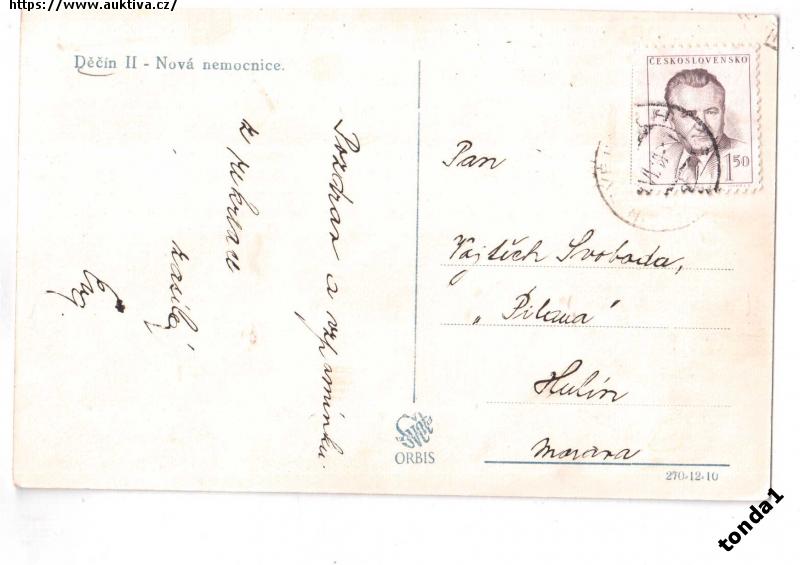 https://www.auktiva.cz/
Děčín II - Nová nemocnice.
ČESKOSLOVENSKO
1.50
Pozdrav a vzpomínku
z
zasílá
Pan
Vojtěch Svoboda,
„Pilana"
Hulín
Morava
ORBIS
270-12-10
tonda1